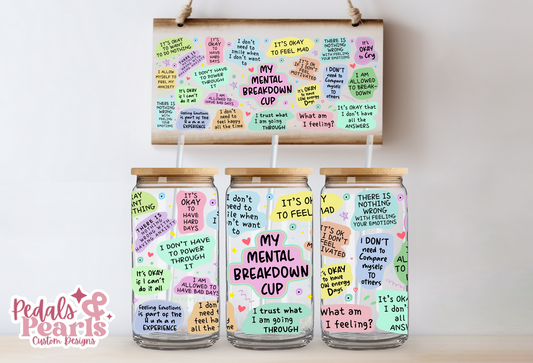 IT'S OKAY
TO WANT
TO DO NOTHING
IT'S
OKAY
TO HAVE
HARD
DAYS
I don't
need to
smile when
I don't
want to
IT'S OKAY
TO FEEL MAD
THERE IS
NOTHING
WRONG
WITH FEELING
YOUR EMOTIONS
It's
OKAY
to Cry
I ALLOW
MYSELF TO
FEEL MY
ANXIETY
I DON'T HAVE
TO POWER
THROUGH
IT
MY
MENTAL
BREAKDOWN
CUP
IT'S OK
IF I DON'T
FEEL
MOTIVATED
I DON'T
NEED to
Compare
myself
TO
others
I AM
ALLOWED
TO BREAK-
DOWN
It's OKAY
is I can't
do it all
I AM
ALLOWED TO
HAVE BAD DAYS
It's OKAY
to have
LOW energy
Days
THERE IS
NOTHING
WRONG
WITH
FEELING YOUR
EMOTIONS
Feeling Emotions
is part of the
Human
EXPERIENCE
I don't
need to
feel happy
all the time
I trust what
I am going
THROUGH
What am
I feeling?
It's OKAY that
I don't have
all the
ANSWERS
AY
ANT
THING
IT'S
OKAY
TO HAVE
HARD
DAYS
THERE IS
I DON'T HAVE
TO POWER
THROUGH
IT
It's OKAY
is I can't
do it all
I AM
ALLOWED TO
HAVE BAD DAYS
Feeling Emotions
is part of the
Human
EXPERIENCE
I don'
need
feel ha
all the
I don't
need to
smile when
I don't
want to
IT'S OK
TO FEEL
MY
MENTAL
BREAKDOWN
CUP
I trust what
I am going
THROUGH
KAY
MAD
THERE IS
NOTHING
WRONG
WITH FEELING
YOUR EMOTIONS
IT'S OK
I DON'T
FEEL
MOTIVATED
I DON'T
NEED to
Compare
myself
TO
others
It's OKAY
to have
LOW energy
Days
What am
I feeling?
It's OKA
I don
all
ANS
Pedals &
Pearls
Custom Designs